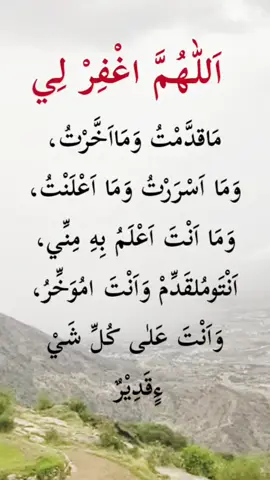 اَللّٰهُمَّ اغْفِرْ لِي
مَاقدَّمْتُ وَمَااَخَّرْتُ،
وَمَا اَسْرَرْتُ وَمَا اَعْلَنْتُ،
وَمَا اَنْتَ اَعْلَمُ بِهِ مِنِّي،
اَنْتَومُلقَدِّمْ وَاَنْتَ امُوَخِّرُ،
وَاَنْتَ عَلٰى كُلِّ شَيْ
ءٍقَدِيْرٌ